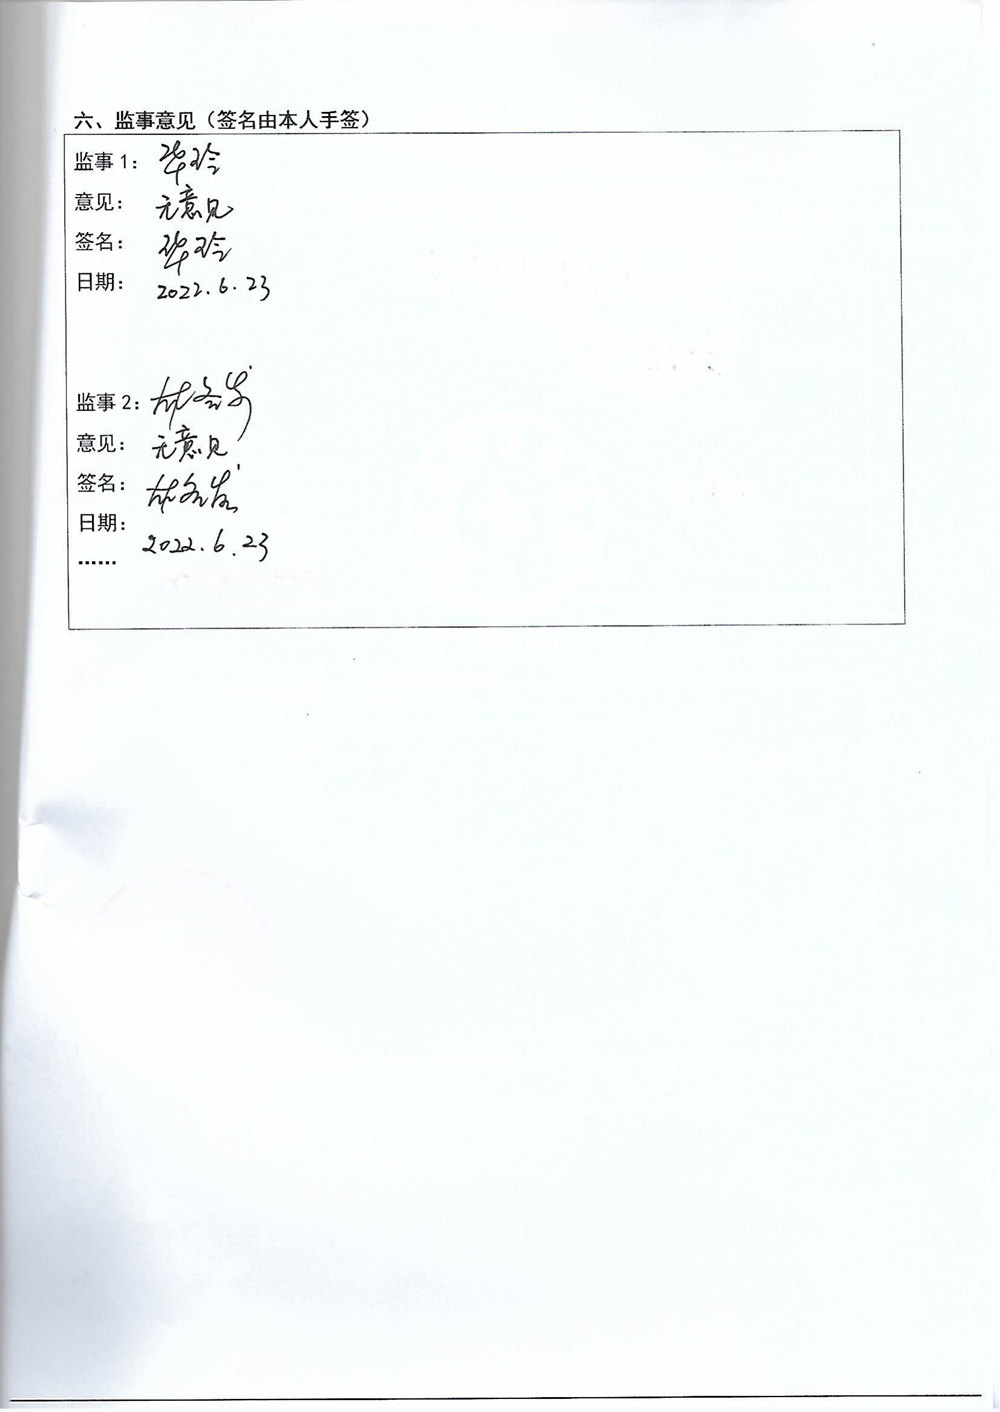 六、监事意见（签名由本人手签）
监事 1： 毕玲
意见： 无意见
签名： 毕玲
日期： 2022.6.23
监事 2： 林
意见： 无意见
签名： 林
日期： 2022.6.23
……